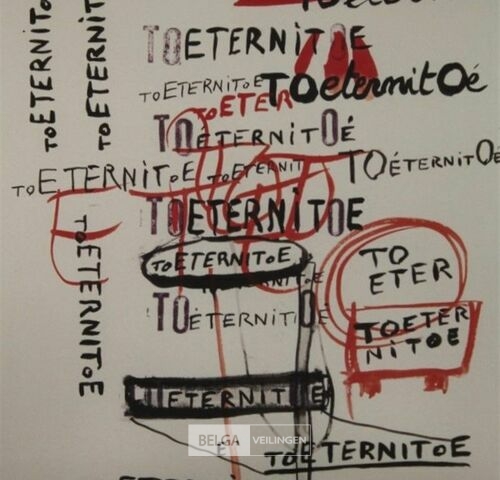 TOETERNITOE
TOETERNITOE
TOETERNITOE
TOETERNITOE
TOeternitOé
TOETER
TOéTERNITOé
TOETERNITOE
TOETERNIT
TOéTERNITOé
TOETERNITOE
TOETERNITOE
TOETERNITOE
TO
ETER
TOETERNITOE
TOETER
NITOE
TOETERNITOE
BELGA VEILINGEN
TOETERNITOE